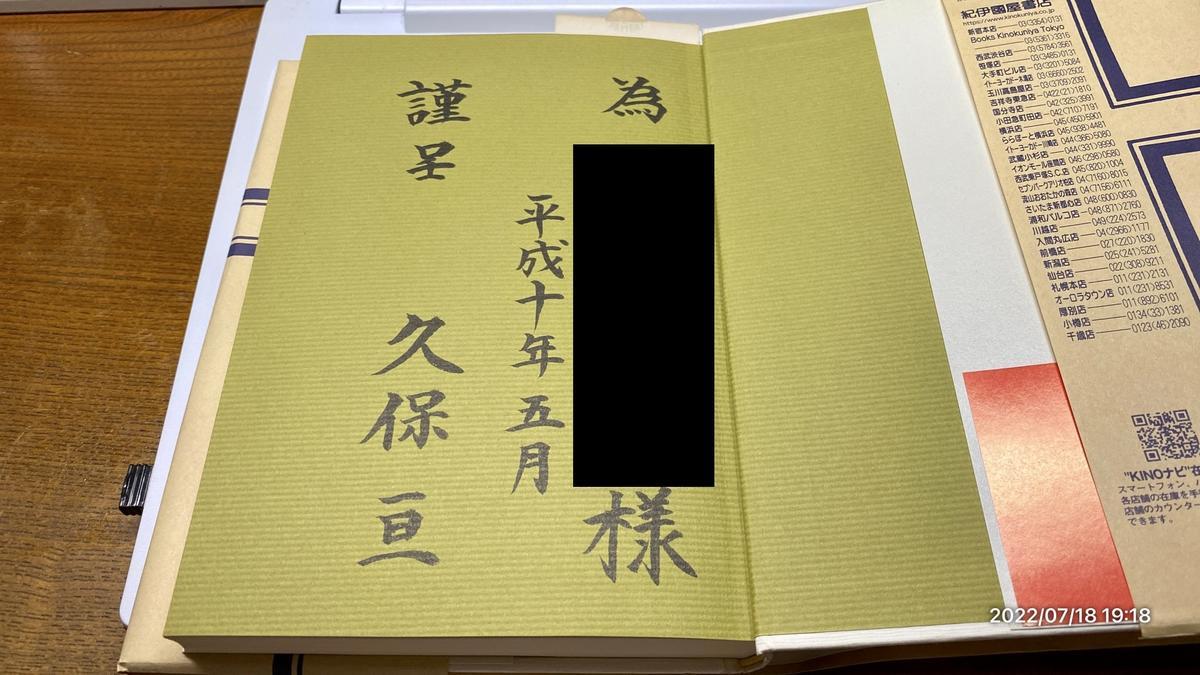 為 様
平成十年五月
謹呈 久保 亘
紀伊國屋書店
https://www.kinokuniya.co.jp
新宿本店 03(3354)0131
Books Kinokuniya Tokyo
03(5361)3316
西武渋谷店 03(5784)3561
笹塚店 03(3485)0131
大手町ビル店 03(3201)5084
イトーヨーカドー木場店 03(5660)2502
玉川高島屋店 03(3709)2091
吉祥寺東急店 0422(21)1810
国分寺店 042(325)3991
小田急町田店 042(710)7191
横浜店 045(450)5901
ららぽーと横浜店 045(938)4481
イトーヨーカドー川崎店 044(366)5080
武蔵小杉店 044(331)9990
イオンモール座間店 046(298)0580
西武東戸塚S.C.店 045(820)1004
セブンパークアリオ柏店 04(7160)8015
流山おおたかの森店 04(7156)6111
さいたま新都心店 048(600)0830
浦和パルコ店 048(871)2760
川越店 049(224)2573
入間丸広店 04(2966)1177
前橋店 027(220)1830
新潟店 025(241)5281
仙台店 022(308)9211
札幌本店 011(231)2131
オーロラタウン店 011(231)8531
厚別店 011(892)6101
小樽店 0134(33)1381
千歳店 0123(46)2090
"KINOナビ"在
スマートフォン、
各店舗の在庫を手
店舗のカウンター
できます。
2022/07/18 19:18